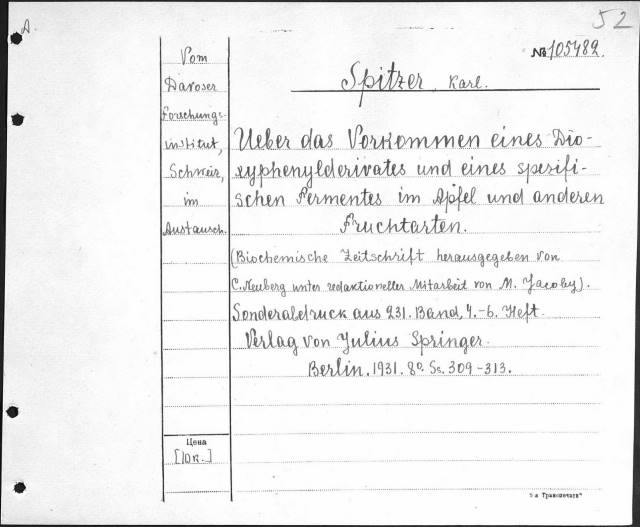 52
A.
№ 105482.
Spitzer, Karl.
Vom
Davoser
Forschungs-
institut,
Schweiz,
im
Austausch.
Ueber das Vorkommen eines Dio-
xyphenylderivates und eines spezifi-
schen Fermentes im Apfel und anderen
Fruchtarten.
(Biochemische Zeitschrift herausgegeben von
C. Neuberg unter redaktioneller Mitarbeit von M. Jacoby).
Sonderabdruck aus 231. Band, 4.-6. Heft.
Verlag von Julius Springer.
Berlin. 1931. 8°. Ss. 309-313.
Цена
[10к.]